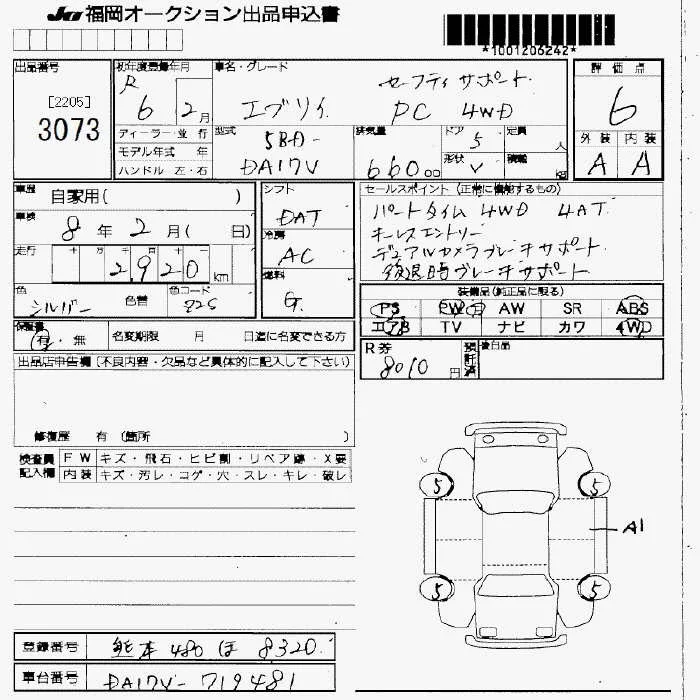 JU 福岡オークション出品申込書
*1001206242*
出品番号
[2205]
3073
初年度登録年月
R
6 2月
ディーラー・並 行
モデル年式 年
ハンドル 左・右
車名・グレード
セーフティサポート
エブリイ PC 4WD
型式
5BD-
DA17V
排気量
660 00
ドア 5
形状 V
定員 人
積載 kg
評価点
6
外装 内装
A A
車歴
自家用( )
車検
8 年 2 月( 日)
走行
十 万 千 百 十 一
2,920 km
色
シルバー
色替
色コード
シフト
DAT
冷房
AC
燃料
G
セールスポイント (正常に機能するもの)
パートタイム 4WD 4AT
キーレスエントリー
デュアルカメラブレーキサポート
後退時ブレーキサポート
装備品(純正品に限る)
PS PW AW SR ABS
エアB TV ナビ カワ 4WD
保証書
有・無
名変期限 月 日迄に名変できる方
R券
8010 円
預託済
後日品
出品店申告欄 (不良内容・欠品など具体的に記入して下さい)
修復歴 有 (箇所 )
検査員記入欄
FW キズ・飛石・ヒビ割・リペア跡・X要
内装 キズ・汚レ・コゲ・穴・スレ・キレ・破レ
5 5
A1
5 5
登録番号 熊本 480 ほ 8320
車台番号 DA17V-719481